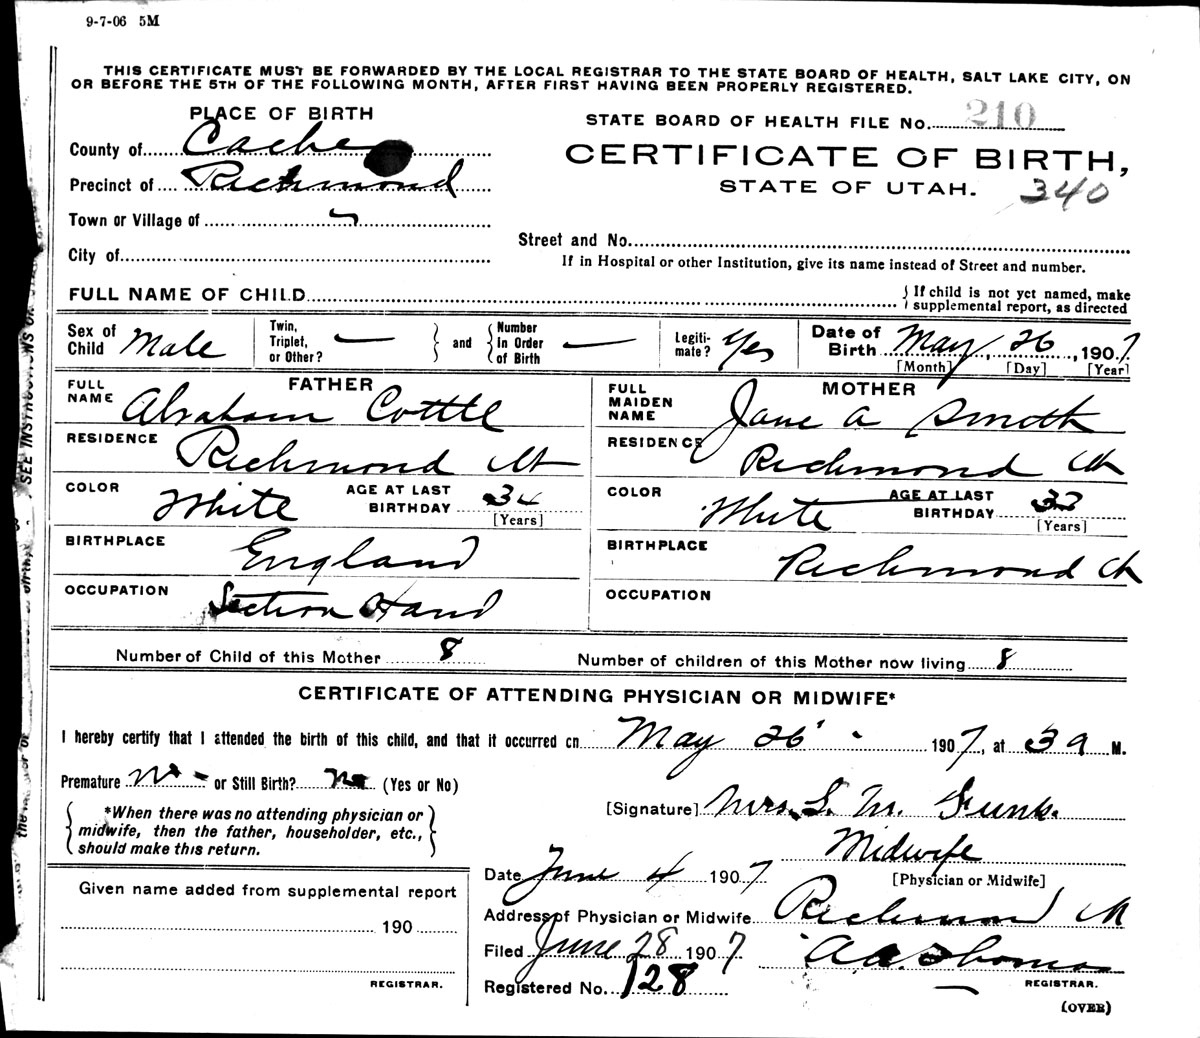 9-7-06 5M
THIS CERTIFICATE MUST BE FORWARDED BY THE LOCAL REGISTRAR TO THE STATE BOARD OF HEALTH, SALT LAKE CITY, ON
OR BEFORE THE 5TH OF THE FOLLOWING MONTH, AFTER FIRST HAVING BEEN PROPERLY REGISTERED.
PLACE OF BIRTH
STATE BOARD OF HEALTH FILE No. 210
County of Cache
CERTIFICATE OF BIRTH,
Precinct of Richmond
STATE OF UTAH. 340
Town or Village of
Street and No.
City of
If in Hospital or other Institution, give its name instead of Street and number.
FULL NAME OF CHILD
{ If child is not yet named, make supplemental report, as directed
Sex of Child Male
Twin, Triplet, or Other? —
} and { Number In Order of Birth —
Legiti-mate? Yes
Date of Birth May, 26, 1907
[Month] [Day] [Year]
FATHER
FULL NAME Abraham Cottle
RESIDENCE Richmond Ut
COLOR White AGE AT LAST BIRTHDAY 34 [Years]
BIRTHPLACE England
OCCUPATION Section Hand
MOTHER
FULL MAIDEN NAME Jane A Smith
RESIDENCE Richmond Ut
COLOR White AGE AT LAST BIRTHDAY [Years]
BIRTHPLACE Richmond Ut
OCCUPATION
Number of Child of this Mother 8 Number of children of this Mother now living 8
CERTIFICATE OF ATTENDING PHYSICIAN OR MIDWIFE*
I hereby certify that I attended the birth of this child, and that it occurred on May 26 1907, at 3 a M.
Premature No - or Still Birth? No (Yes or No)
{ *When there was no attending physician or midwife, then the father, householder, etc., should make this return. }
[Signature] Mrs. S. M. Funk.
Midwife
[Physician or Midwife]
Date June 4 1907
Address of Physician or Midwife Richmond Ut
Filed June 28 1907 A.A. Thomas
REGISTRAR.
Registered No. 128
Given name added from supplemental report
190
REGISTRAR.
(OVER)
SEE INSTRUCTIONS ON